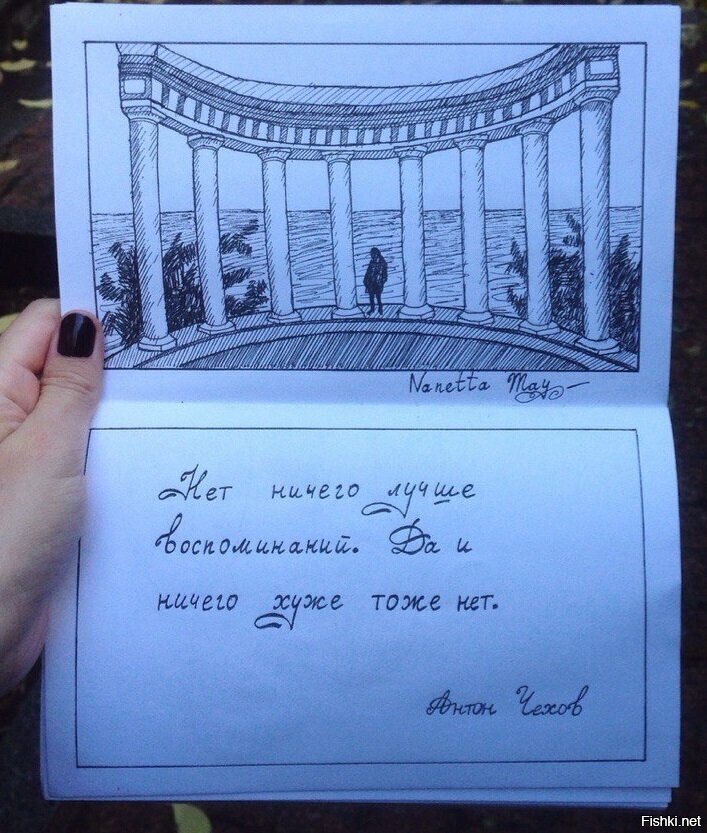 Nanetta May
Нет ничего лучше
воспоминаний. Да и
ничего хуже тоже нет.
Антон Чехов
Fishki.net